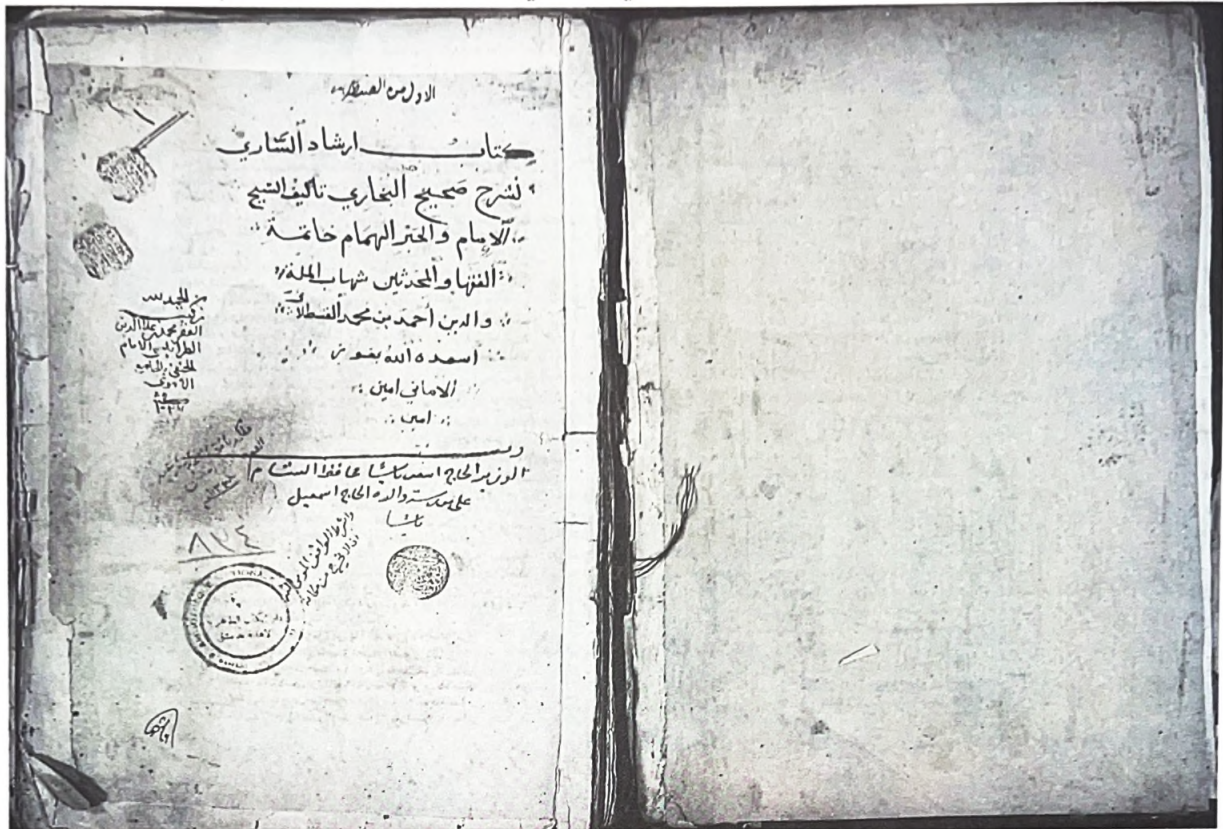 الاول من القسطلاني
كتاب ارشاد الساري
لشرح صحيح البخاري تاليف الشيخ
الامام والحبر الهمام خاتمة
الفقها والمحدثين شهاب الملة
والدين احمد بن محمد القسطلاني
اسعده الله بفوز
الاماني امين
امين
الحمد لله
الفقير محمد بن علا الدين
الطرابلسي الامام
الحنفي بالجامع
الاموي
وقف
الوزير الحاج اسعد باشا محافظ الشام
على مدرسة والده الحاج اسمعيل
باشا
وشرط الواقف المومى اليه
ان لا يخرج من مكانه
٨٧٤
دار الكتب الظاهرية
الاهلية بدمشق